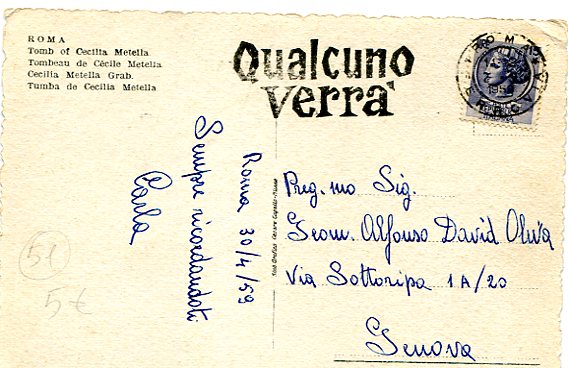 ROMA
Tomb of Cecilia Metella
Tombeau de Cécile Metella
Cecilia Metella Grab.
Tumba de Cecilia Metella
Qualcuno
verrà
Roma 30/4/59
Sempre ricordandoti
Carla
Preg.mo Sig.
Geom. Alfonso David
Via Sottoripa 1A/20
Genova
51
5€